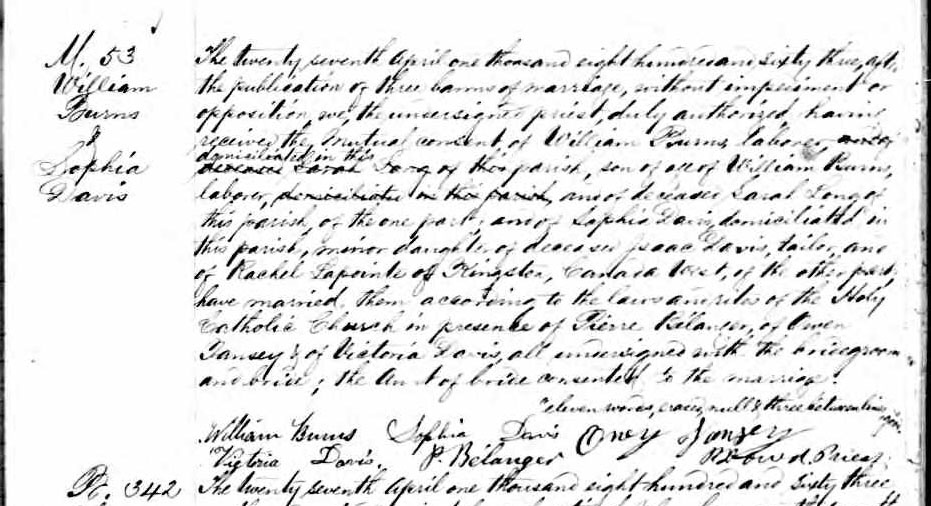 M. 53
William
Burns
&
Sophia
Davis
The twenty seventh April one thousand eight hundred and sixty three, aft.
the publication of three banns of marriage, without impediment or
opposition, we, the undersigned priest, duly authorized, having
received the mutual consent, of William Burns, laborer,
domiciliated in this
deceased Sarah Long of this parish, son of age of William Burns,
laborer, domiciliated in this parish, and of deceased Sarah Long of
this parish, of the one part; and of Sophia Davis, domiciliated in
this parish, minor daughter of deceased Isaac Davis, tailor, and
of Rachel Lapointe of Kingston, Canada West, of the other part,
have married them according to the laws and rites of the Holy
Catholic Church in presence of Pierre Bélanger, of Owen
Tansey & of Victoria Davis, all undersigned with the bridegroom
and bride; the Aunt of bride consented to the marriage.
eleven words erased null & three between lines good
William Burns Sophia Davis Oney Tansey
Victoria Davis. P. Bélanger P. Dowd. Priest
R. 342 The twenty seventh April one thousand eight hundred and sixty three